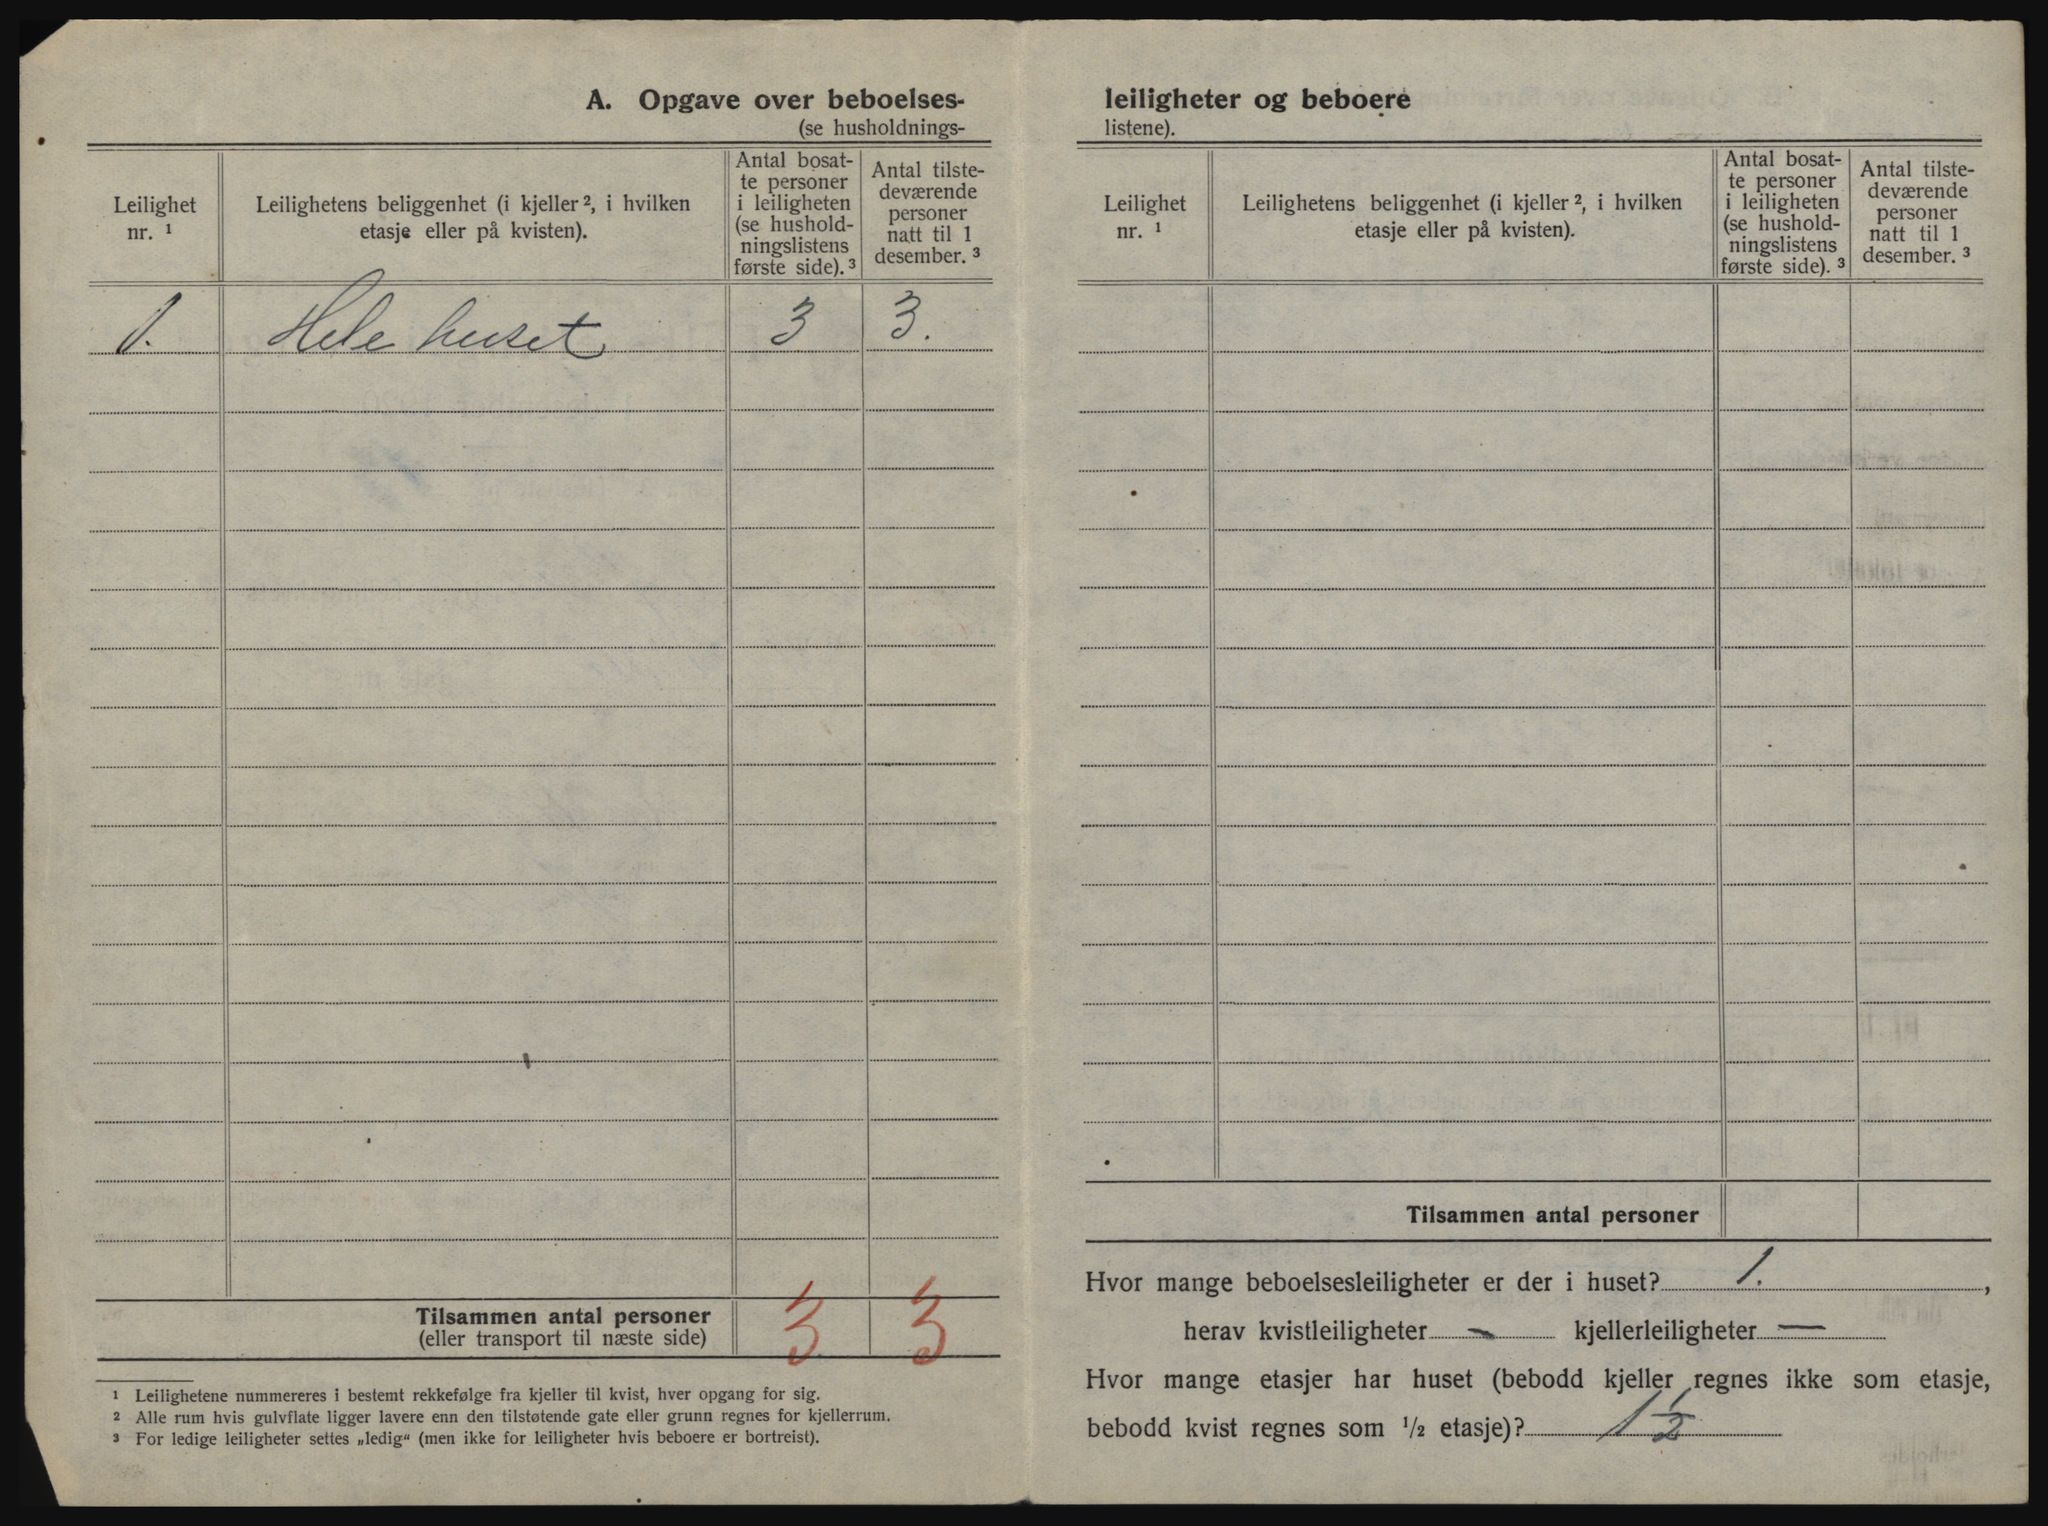 A. Opgave over beboelses-
(se husholdnings-
Leilighet
nr. ¹
Leilighetens beliggenhet (i kjeller ², i hvilken
etasje eller på kvisten).
Antal bosat-
te personer
i leiligheten
(se hushold-
ningslistens
første side). ³
Antal tilste-
deværende
personer
natt til 1
desember. ³
1. Hele huset 3 3.
Tilsammen antal personer 3 3
(eller transport til næste side)
¹ Leilighetene nummereres i bestemt rekkefølge fra kjeller til kvist, hver opgang for sig.
² Alle rum hvis gulvflate ligger lavere enn den tilstøtende gate eller grunn regnes for kjellerrum.
³ For ledige leiligheter settes „ledig“ (men ikke for leiligheter hvis beboere er bortreist).
leiligheter og beboere
listene).
Leilighet
nr. ¹
Leilighetens beliggenhet (i kjeller ², i hvilken
etasje eller på kvisten).
Antal bosat-
te personer
i leiligheten
(se hushold-
ningslistens
første side). ³
Antal tilste-
deværende
personer
natt til 1
desember. ³
Tilsammen antal personer
Hvor mange beboelsesleiligheter er der i huset? 1. ,
herav kvistleiligheter - kjellerleiligheter —
Hvor mange etasjer har huset (bebodd kjeller regnes ikke som etasje,
bebodd kvist regnes som ½ etasje)? 1 ½